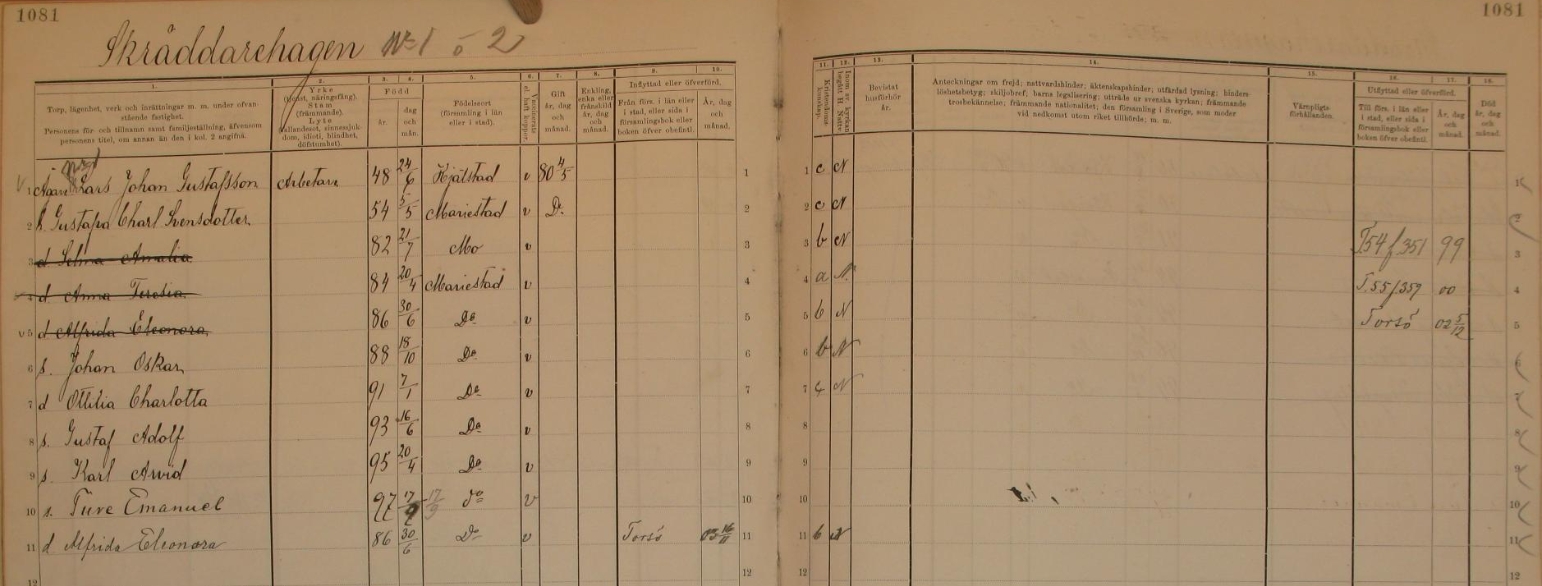 1081
1081
Skräddarehagen No 1 o 2
1. 2. 3. 4. 5. 6. 7. 8. 9. 10.
Torp, lägenhet, verk och inrättningar m. m. under ofvanstående fastighet.
Personens för- och tillnamn samt familjeställning, äfvensom personens titel, om annan än den i kol. 2 angifna.
Yrke (tjenst, näringsfång).
Stam (främmande).
Lyte
Född
år.
dag och mån.
Födelseort (församling i län eller i stad).
Gift år, dag och månad.
Inflyttad eller öfverförd.
Från förs. i län eller i stad, eller sida i församlingsbok eller boken öfver obefintl.
År, dag och månad.
11. 12. 13. 14. 15. 16. 17. 18.
Bevistat husförhör år.
Anteckningar om frejd; nattvardshinder; äktenskapshinder, utfärdad lysning; hinderslöshetsbetyg; skiljobref, barns legalisering; utträde ur svenska kyrkan; främmande trosbekännelse; främmande nationalitet; den församling i Sverige, som moder vid nedkomst utom riket tillhörde; m. m.
Värnpligtsförhållanden.
Utflyttad eller öfverförd.
Till förs. i län eller i stad, eller sida i församlingsbok eller boken öfver obefintl.
År, dag och månad.
Död år, dag och månad.
No 1
1 Lars Johan Gustafsson Arbetare 48 24/6 Hjälstad v 80 4/5 1 1 c N 1
2 h. Gustafva Charl Svensdotter 54 5/5 Mariestad v Do 2 2 c N 2
3 d Selma Amalia 82 21/7 Mo v 3 3 b N F54 f 351 99 3
4 d Anna Teresia 84 20/4 Mariestad v 4 4 a N F.55 f 359 00 4
v 5 d Alfrida Eleonora 86 30/6 Do v 5 5 b N Torsö 02 5/12 5
6 s. Johan Oskar 88 18/10 Do v 6 6 b N 6
7 d Ottilia Charlotta 91 7/1 Do v 7 7 c N 7
8 s. Gustaf Adolf 93 16/6 Do v 8 8 8
9 s. Karl Arvid 95 20/4 Do v 9 9 9
10 s. Ture Emanuel 97 17/9 17/9 do v 10 10 10
11 d Alfrida Eleonora 86 30/6 Do v Torsö 11 11 b N 11
12 12 12 12